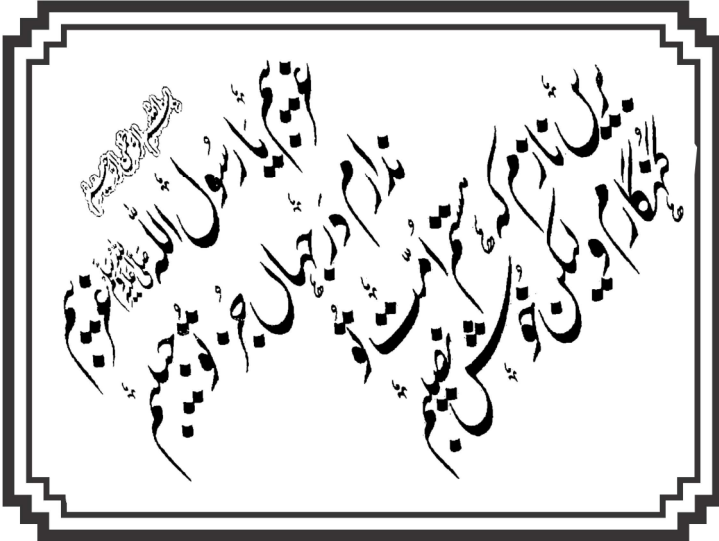 بِسْمِ اللهِ الرَّحْمٰنِ الرَّحِيْمِ
غریبم یَا رَسُوْل اللہ صَلَّى اللهُ عَلَيْهِ وَسَلَّم غریبم
ندارم در جہاں جز تو حبیبم
بریں نازم کہ ہستم اُمّت تُو
گنہگارم ولیکن خوش نصیبم